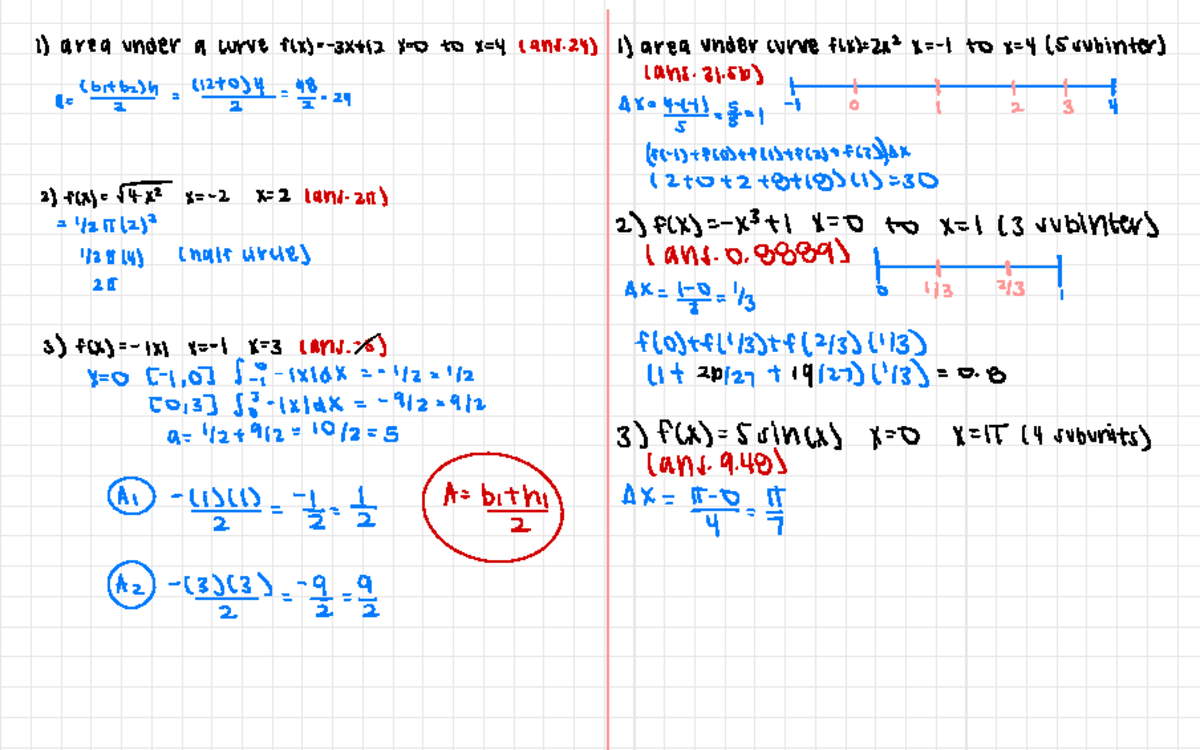 1) area under a curve f(x)=-3x+12 x=0 to x=4 (ans.24)
a= (b1+b2)h / 2 = (12+0)4 / 2 = 48 / 2 = 24
2) f(x)= √4-x² x=-2 x=2 (ans. 2π)
= 1/2 π (2)²
1/2 π (4) (half circle)
2π
3) f(x)=-|x| x=-1 x=3 (ans.-5)
x=0 [-1,0] ∫₋₁⁰ -|x|dx = -1/2 = 1/2
[0,3] ∫₀³ -|x|dx = -9/2 = 9/2
a= 1/2 + 9/2 = 10/2 = 5
A1 -(1)(1) / 2 = -1 / 2 = 1 / 2
A= b1+h1 / 2
A2 -(3)(3) / 2 = -9 / 2 = 9 / 2
1) area under curve f(x)=2x² x=-1 to x=4 (5 subinter)
(ans. 31.5b)
-1 0 1 2 3 4
Δx= 4-(-1) / 5 = 5 / 5 = 1
(f(-1)+f(0)+f(1)+f(2)+f(3))Δx
(2+0+2+8+18)(1)=30
2) f(x)=-x³+1 x=0 to x=1 (3 subinter)
(ans. 0.8889)
0 1/3 2/3 1
Δx = 1-0 / 3 = 1/3
f(0)+f(1/3)+f(2/3)(1/3)
(1+ 26/27 + 19/27)(1/3) = 0.8
3) f(x)=5 sin(x) x=0 x=π (4 subunits)
(ans. 9.48)
Δx = π-0 / 4 = π / 7